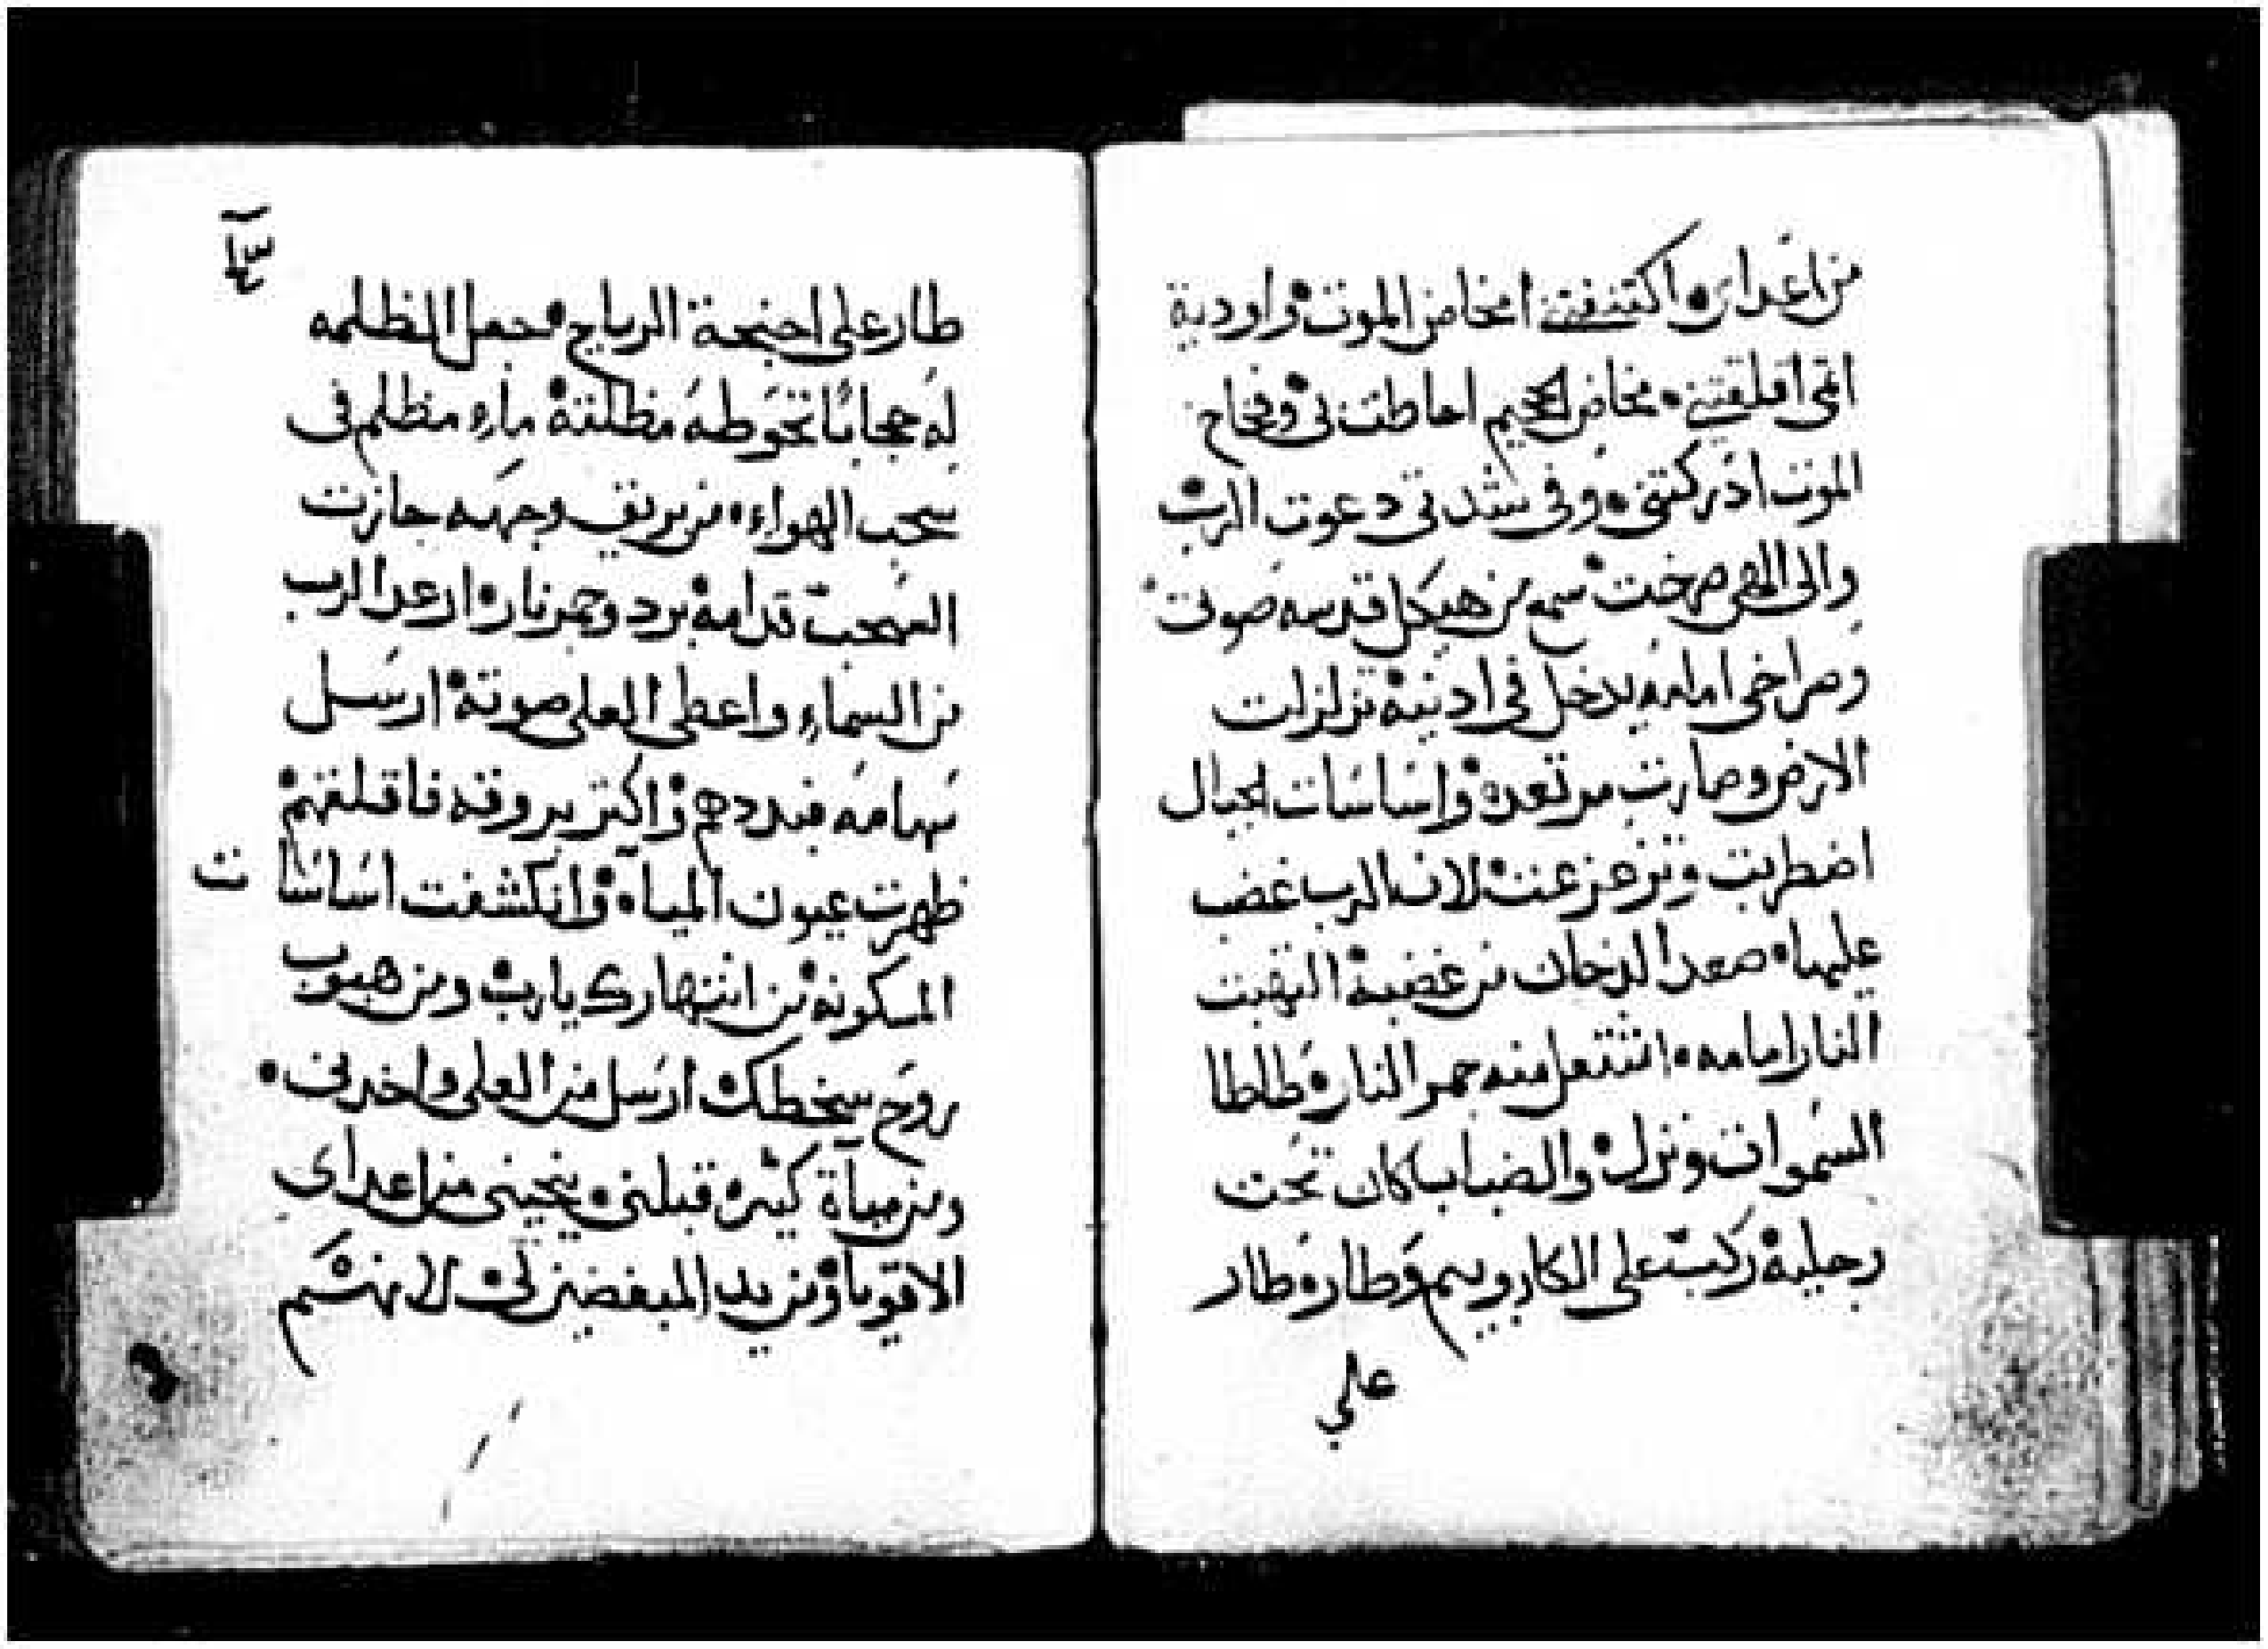 من اعداى اكتنفتنى امخاض الموت واودية
اتمى اقلقتنى مخاض الجحيم احاطت بى وفخاخ
الموت ادركتنى وفى شدتى دعوت الرب
والى الهى صرخت سمع من هيكل قدسه صوتى
وصراخى امامه يدخل فى ادنيه تزلزلت
الارض وصارت مرتعده واساسات الجبال
اضطربت وتزعزعت لان الرب غضب
عليها صعد الدخان من غضبه التهبت
النار امامه اشتعل منه جمر النار طاطا
السموات ونزل والضباب كان تحت
رجليه ركب على الكاروبيم وطار طار
علي
طار على اجنحة الرياح جعل الظلمه
له حجابا تحوطه مظلته ماء مظلم فى
سحب الهواء من بريق وجهه جازت
السحب قدامه برد وجمر نار ارعد الرب
من السماء واعطى العلى صوته ارسل
سهامه فبددهم واكتر بروقه فاقلقهم
ظهرت عيون المياه وانكشفت اساسات
المسكونه من انتهارك يارب ومن هبوب
روح سخطك ارسل من العلى واخدنى
ومن مياة كتيره قبلنى ينجينى من اعداى
الاقويا ومن يد المبغضين لى لانهم